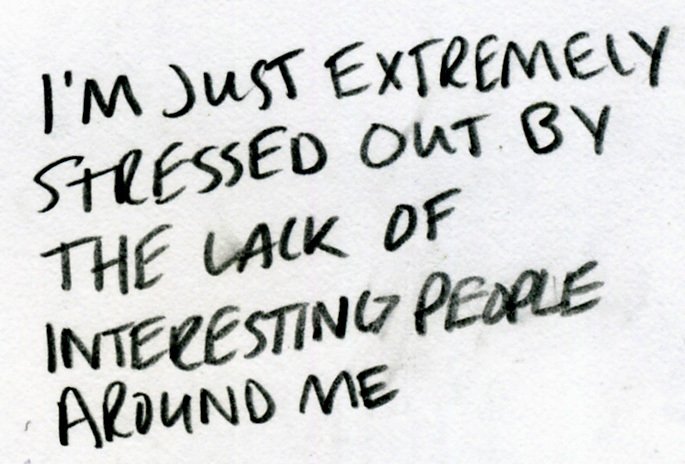 I'M JUST EXTREMELY
STRESSED OUT BY
THE LACK OF
INTERESTING PEOPLE
AROUND ME